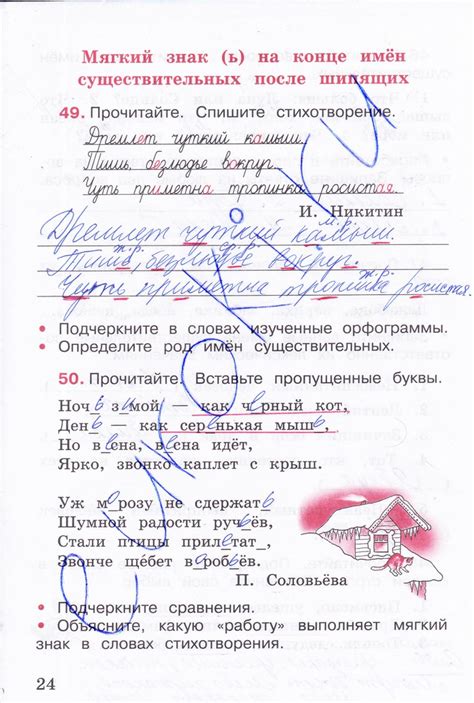 Мягкий знак (ь) на конце имён
существительных после шипящих
49. Прочитайте. Спишите стихотворение.
Дремлет чуткий камыш.
Тишь безлюдье вокруг.
Чуть приметна тропинка росистая.
И. Никитин
м.р.
Дремлет чуткий камыш.
ж.р. с.р.
Тишь, безлюдье вокруг.
ж.р.
Чуть приметна тропинка росистая.
• Подчеркните в словах изученные орфограммы.
• Определите род имён существительных.
50. Прочитайте. Вставьте пропущенные буквы.
Ночь зимой — как чёрный кот,
День — как серенькая мышь,
Но весна, весна идёт,
Ярко, звонко каплет с крыш.
Уж морозу не сдержать
Шумной радости ручьёв,
Стали птицы прилетать,
Звонче щебет воробьёв.
П. Соловьёва
• Подчеркните сравнения.
• Объясните, какую «работу» выполняет мягкий
знак в словах стихотворения.
24